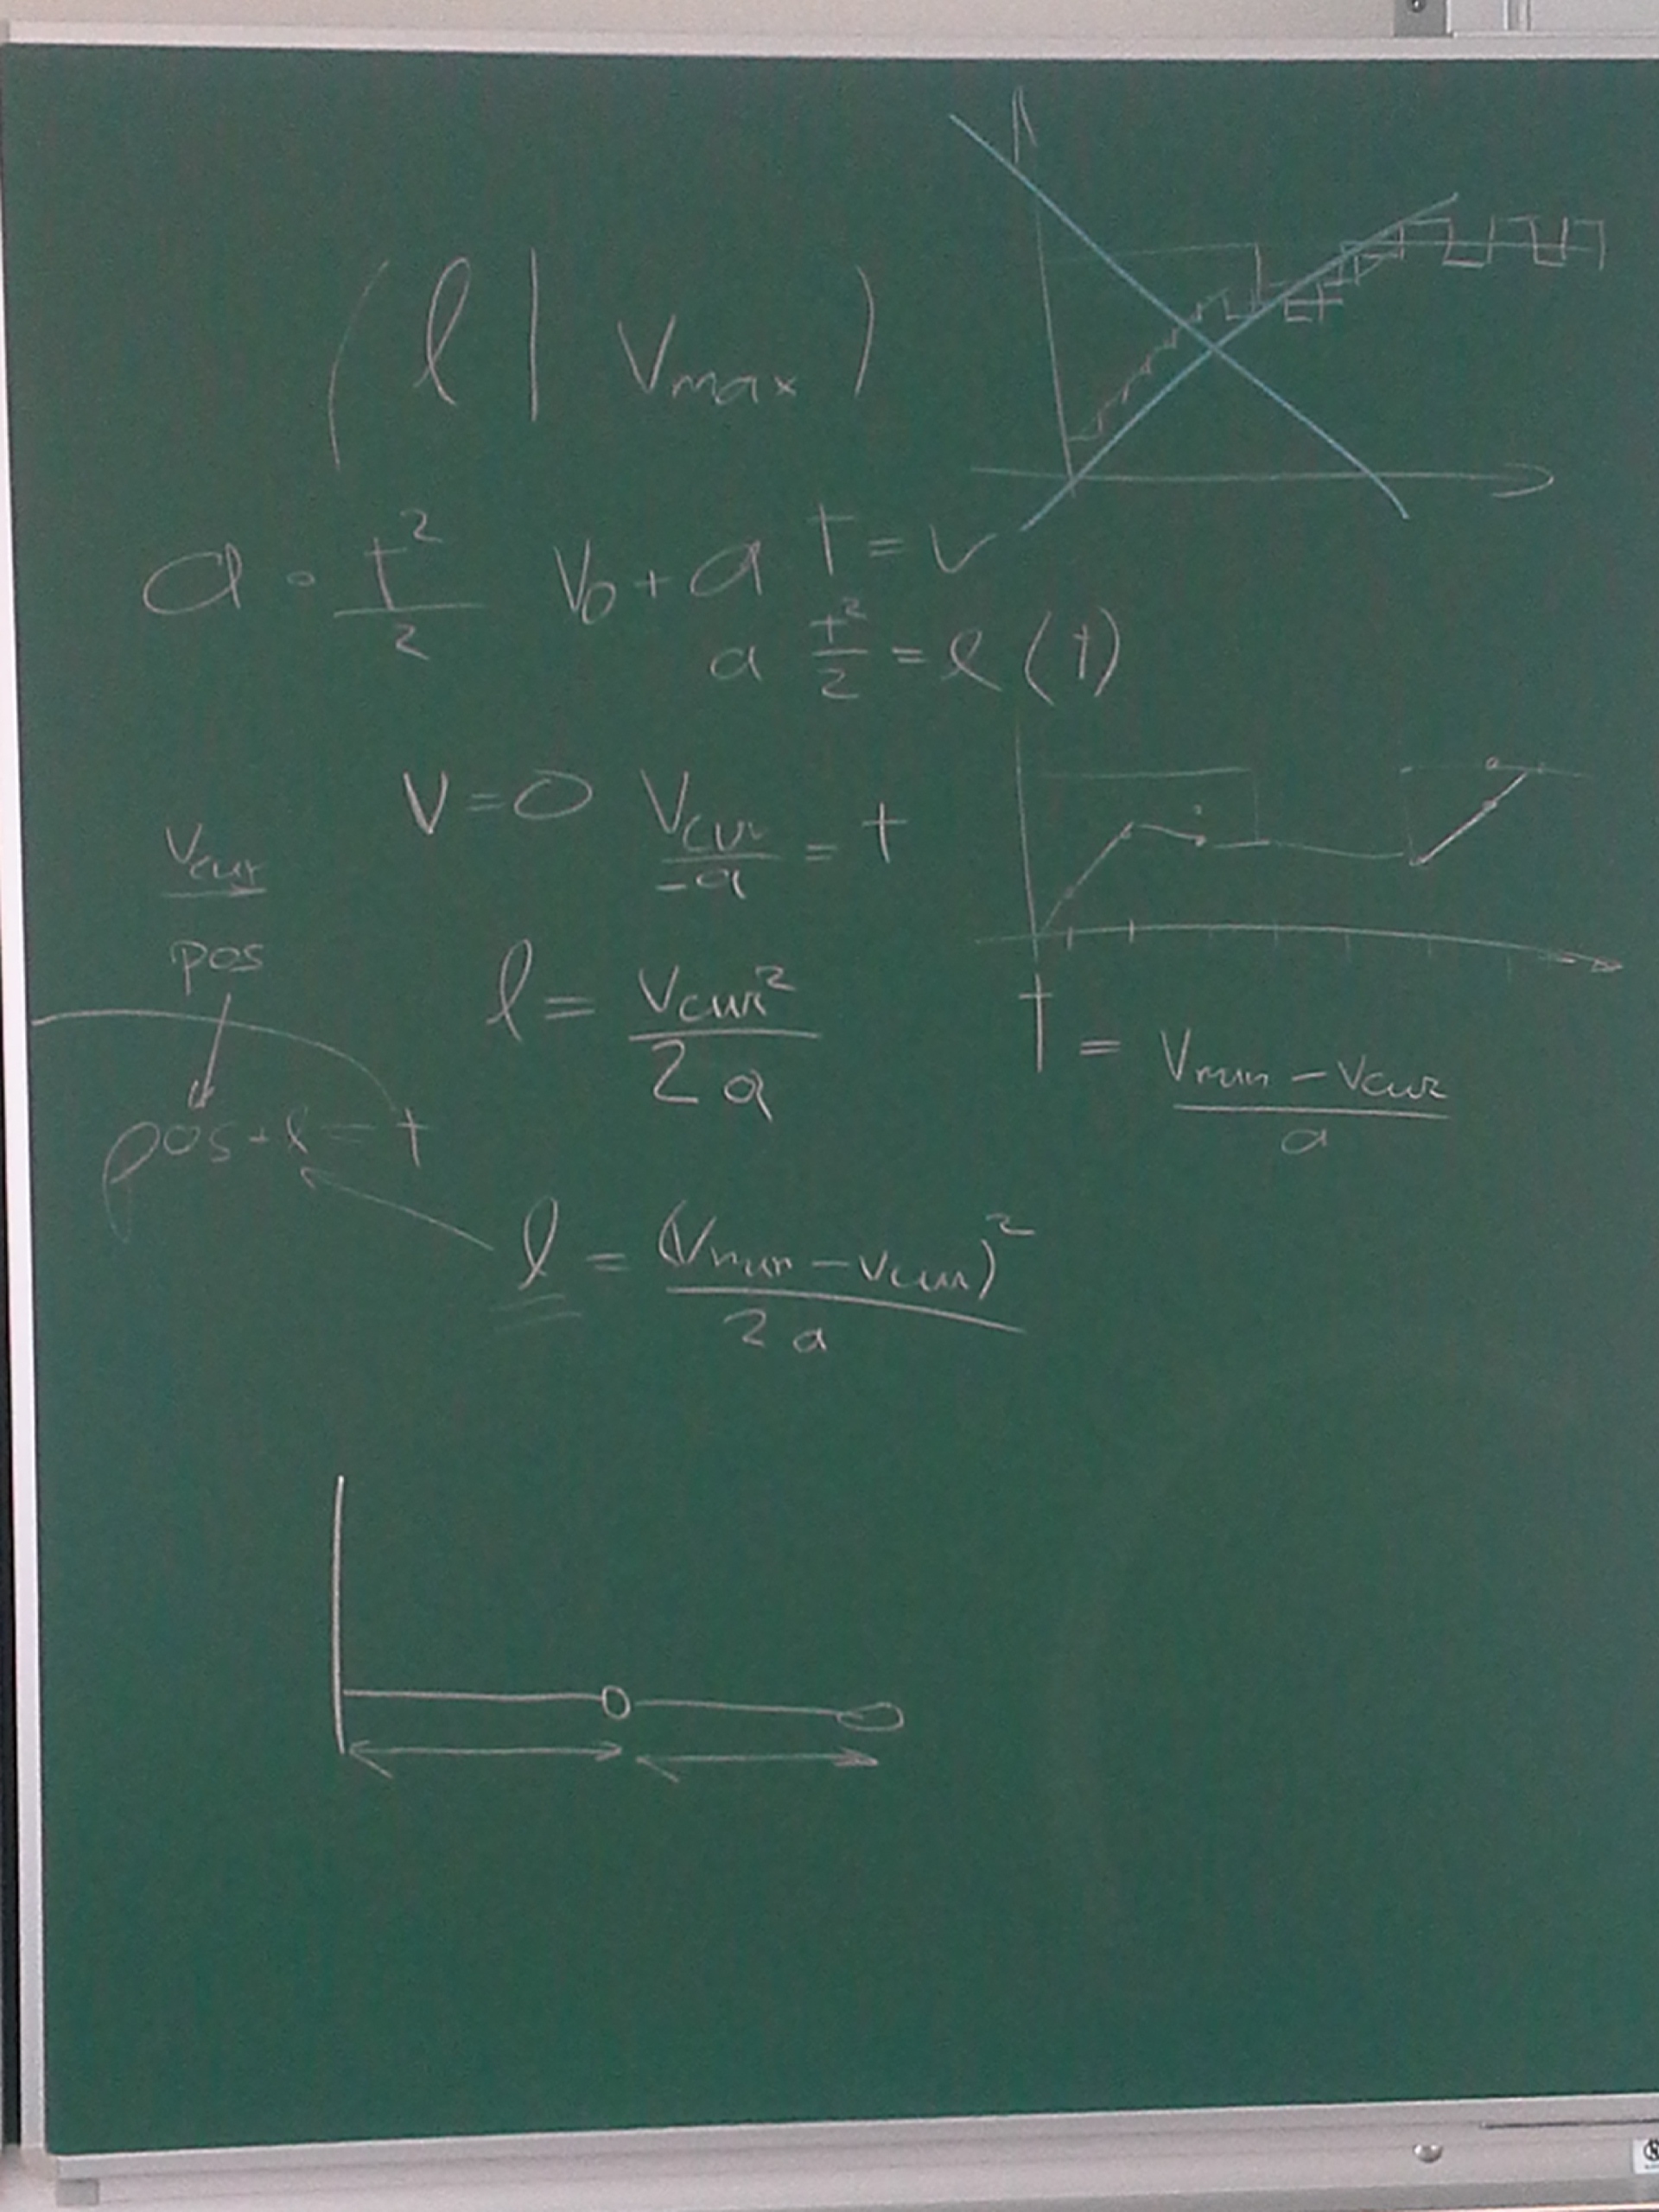 ( l | Vmax )
a · t²/2   V₀ + a t = v
a t²/2 = l (t)
V = 0   Vcur/-a = t
Vcur
pos
l = Vcur²/2a
t = Vmin - Vcur/a
pos + l = t
l = (Vmin - Vcur)²/2a